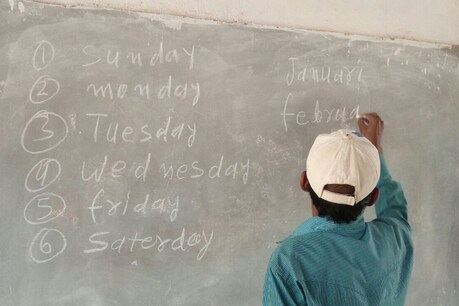 1 Sunday
2 monday
3 Tuesday
4 Wednesday
5 friday
6 Saterday
Januari
februa